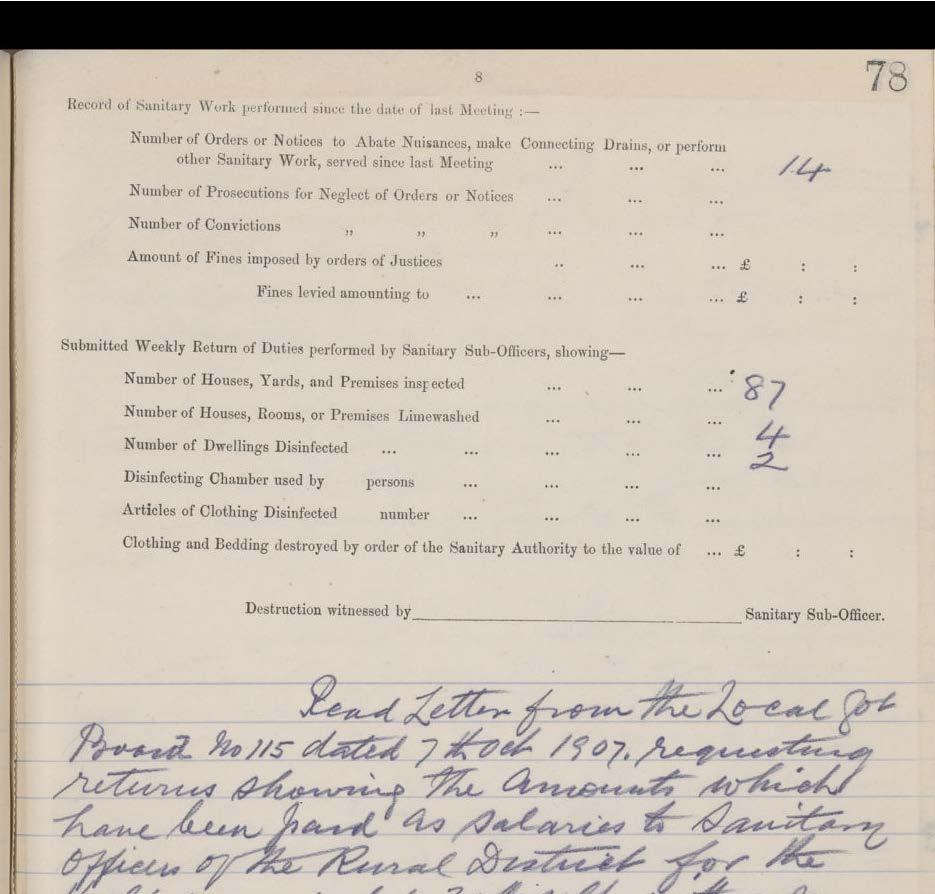 8
78
Record of Sanitary Work performed since the date of last Meeting :—
Number of Orders or Notices to Abate Nuisances, make Connecting Drains, or perform
other Sanitary Work, served since last Meeting ... ... ... 14
Number of Prosecutions for Neglect of Orders or Notices ... ... ...
Number of Convictions „ „ „ ... ... ...
Amount of Fines imposed by orders of Justices .. ... ... £ : :
Fines levied amounting to ... ... ... ... £ : :
Submitted Weekly Return of Duties performed by Sanitary Sub-Officers, showing—
Number of Houses, Yards, and Premises inspected ... ... ... 87
Number of Houses, Rooms, or Premises Limewashed ... ... ... 4
Number of Dwellings Disinfected ... ... ... ... ... 2
Disinfecting Chamber used by persons ... ... ... ...
Articles of Clothing Disinfected number ... ... ... ...
Clothing and Bedding destroyed by order of the Sanitary Authority to the value of ... £ : :
Destruction witnessed by Sanitary Sub-Officer.
Read Letter from the Local Gov
Board No 115 dated 7th Oct 1907. requesting
returns showing the Amounts which
have been paid as Salaries to Sanitary
Officers of the Rural District for the